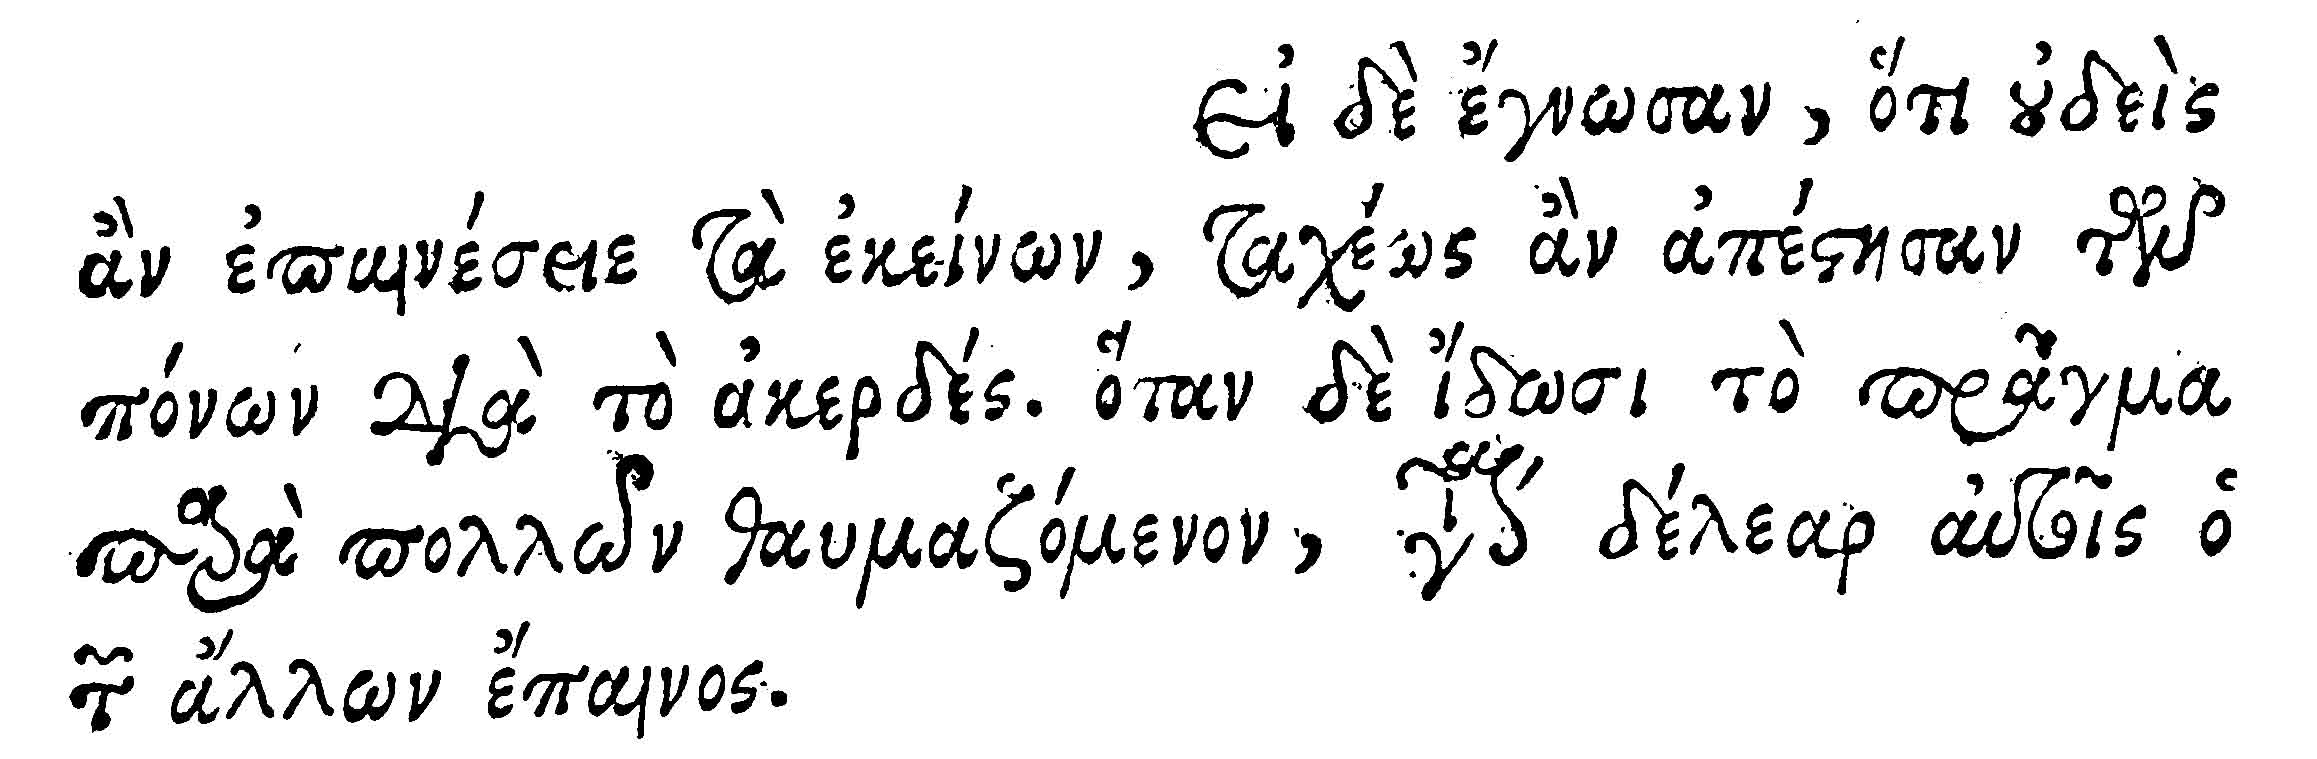 Εἰ δὲ ἔγνωσαν, ὅτι οὐδεὶς
ἂν ἐπαινέσειε τὰ ἐκείνων, ταχέως ἂν ἀπέστησαν τῶν
πόνων διὰ τὸ ἀκερδές. ὅταν δὲ ἴδωσι τὸ πρᾶγμα
παρὰ πολλῶν θαυμαζόμενον, γίνεται δέλεαρ αὐτοῖς ὁ
τῶν ἄλλων ἔπαινος.